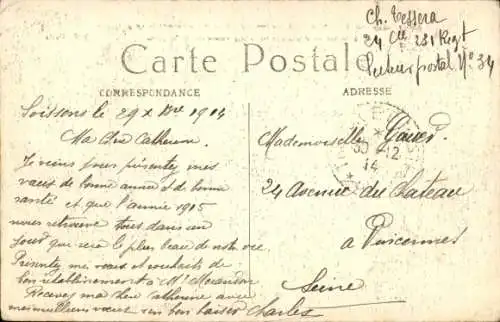 Ch. Tessera
24 Cie 231 Regt
Secteur postal No 34
Carte Postale
CORRESPONDANCE
ADRESSE
Soissons le 29 Xbre 1914
Ma chère Catherine.
Je viens vous présenter mes
vœux de bonne année & de bonne
santé et que l'année 1915
nous retrouve tous dans un
jour qui sera le plus beau de notre vie
Présentez mes vœux et souhaits de
bon rétablissement à Mr
Recevez ma chère Catherine avec
mes meilleurs vœux un bon baiser Charles
Mademoiselle
30 -12
14
24 Avenue du Château
à Vincennes
Seine